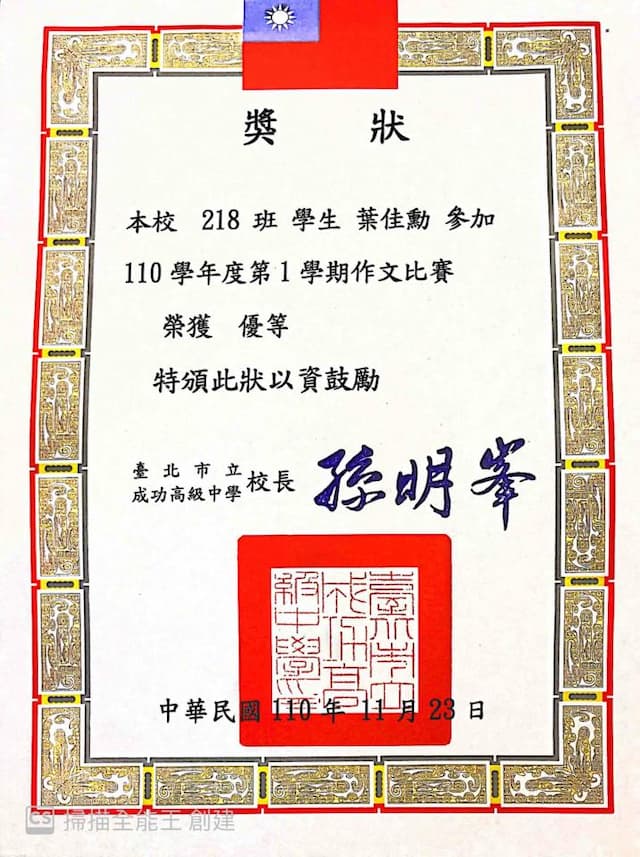 獎狀
本校 218 班 學生 葉佳勳 參加
110 學年度第 1 學期作文比賽
榮獲 優等
特頒此狀以資鼓勵
臺北市立
成功高級中學 校長 孫明峯
臺北市立成功高級中學
中華民國 110 年 11 月 23 日
CS 掃描全能王 創建